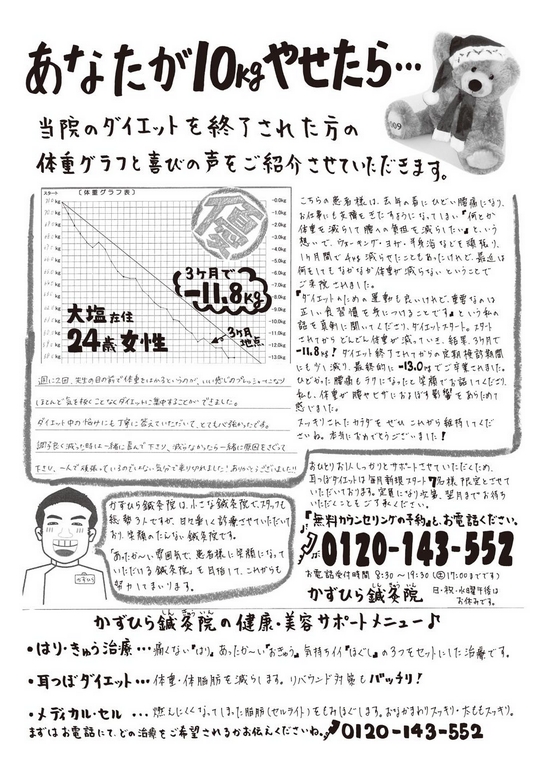 あなたが10kgやせたら…
当院のダイエットを終了された方の
体重グラフと喜びの声をご紹介させていただきます。
スタート
(体重グラフ表)
-0.0kg
-1.0kg
-2.0kg
-3.0kg
-4.0kg
-5.0kg
-6.0kg
-7.0kg
-8.0kg
-9.0kg
-10.0kg
-11.0kg
-12.0kg
-13.0kg
3ヶ月で
-11.8kg
大塩在住
24歳女性
3ヶ月
地点
こちらの患者様は、去年の春にひどい腰痛になり、
お仕事にも支障をきたすようになってしまい『何とか
体重を減らして腰への負担を減らしたい』という
想いで、ウォーキング・ヨガ・半身浴などを頑張り、
1ヶ月間で4kg減らせたこともあったけれど、最近は
何をしてもなかなか体重が減らないということで
ご来院されました。
『ダイエットのための運動も良いけれど、重要なのは
正しい食習慣を身につけることです』という私の
話を真剣に聞いてくださり、ダイエットスタート。スタート
されてからどんどん体重が減っていき、結果、3ヶ月で
-11.8kg！ダイエット終了されてからの定期検診期間
にも少し減り、最終的に-13.0kgでご卒業されました。
ひどかった腰痛もラクになったと笑顔でお話してくださり、
私も、体重が腰やヒザにおよぼす影響をあらためて
感じました。
スッキリこんだカラダをぜひこれから維持してくだ
さいね。本当におめでとうございました！
週に2回、先生の目の前で体重をはかるというのが、いい感じのプレッシャーになり
ほとんど気を抜くことなくダイエットに集中することができました。
ダイエット中の悩みにも丁寧に答えていただいて、とても心強かったです。
調子良く減った時は一緒に喜んで下さり、減らなかったら一緒に原因をさぐって
下さり、一人で頑張っているのでないん気分で乗り切れました！ありがとうございました!!
おひとりお1人しっかりとサポートさせていただくため、
耳つぼダイエットは毎月新規スタート7名様限定とさせて
いただいております。定員になり次第、翌月までお待ち
いただくことをご了承ください。
『無料カウンセリングの予約』と、お電話ください。
0120-143-552
お電話受付時間 8:30～19:30(土17:00までです)
かずひら鍼灸院
日・祝・水曜午後は
お休みです。
かずひら鍼灸院は、小さな鍼灸院で、スタッフも
総勢3人ですが、日々楽しく診療させていただいて
おり、笑顔のたえない鍼灸院です。
「あたたか～い雰囲気で、患者様に笑顔になって
いただける鍼灸院」を目指して、これからも
努力してまいります。
かずひら
かずひら鍼灸院の健康・美容サポートメニュー♪
しん きゅう いん
・はり・きゅう治療…痛くない『はり』、あったか～い『おきゅう』、気持ちイイ『ほぐし』の3つをセットにした治療です。
・耳つぼダイエット…体重・体脂肪を減らします。リバウンド対策もバッチリ！
・メディカル・セル …燃えにくくなってしまった脂肪(セルライト)をもみほぐします。おなかまわりスッキリ・太ももスッキリ。
まずはお電話にて、どの治療をご希望されるかお伝えくださいね。0120-143-552